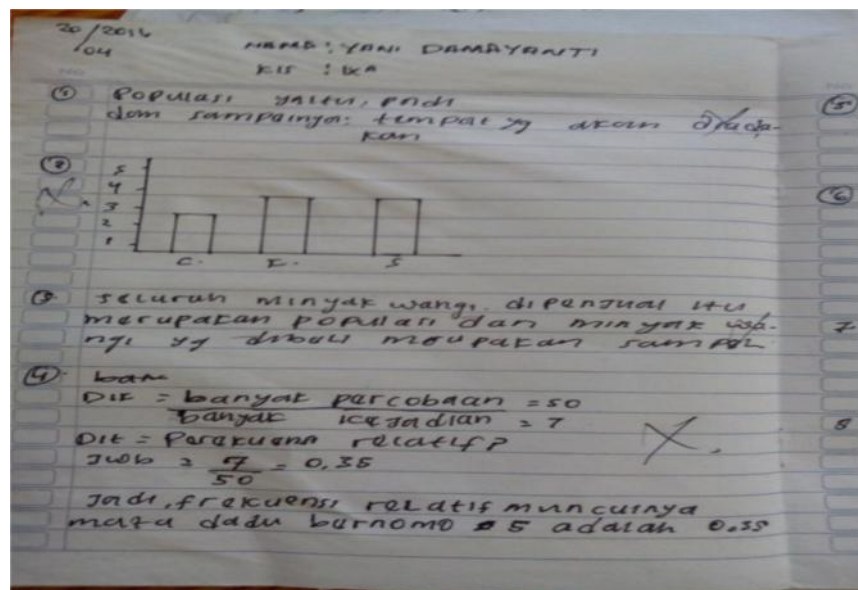 20/2016
04
NAMA : YANI DAMAYANTI
KLS : IX A
① Populasi yaitu, padi
dan sampelnya: tempat yg akan diada-
kan
②
5
4
3
2
1
C. E. S
③ seluruh minyak wangi dipenjual itu
merupakan populasi dan minyak wa-
ngi yg dibeli meupakan sampel
④ ban
Dik = banyak percobaan = 50
banyak kejadian = 7
Dit = Perekuenn relatif?
Jwb = 7/50 = 0,35
Jadi, frekuensi relatif munculnya
mata dadu burnomo 5 adalah 0.35
⑤
⑥
7
8